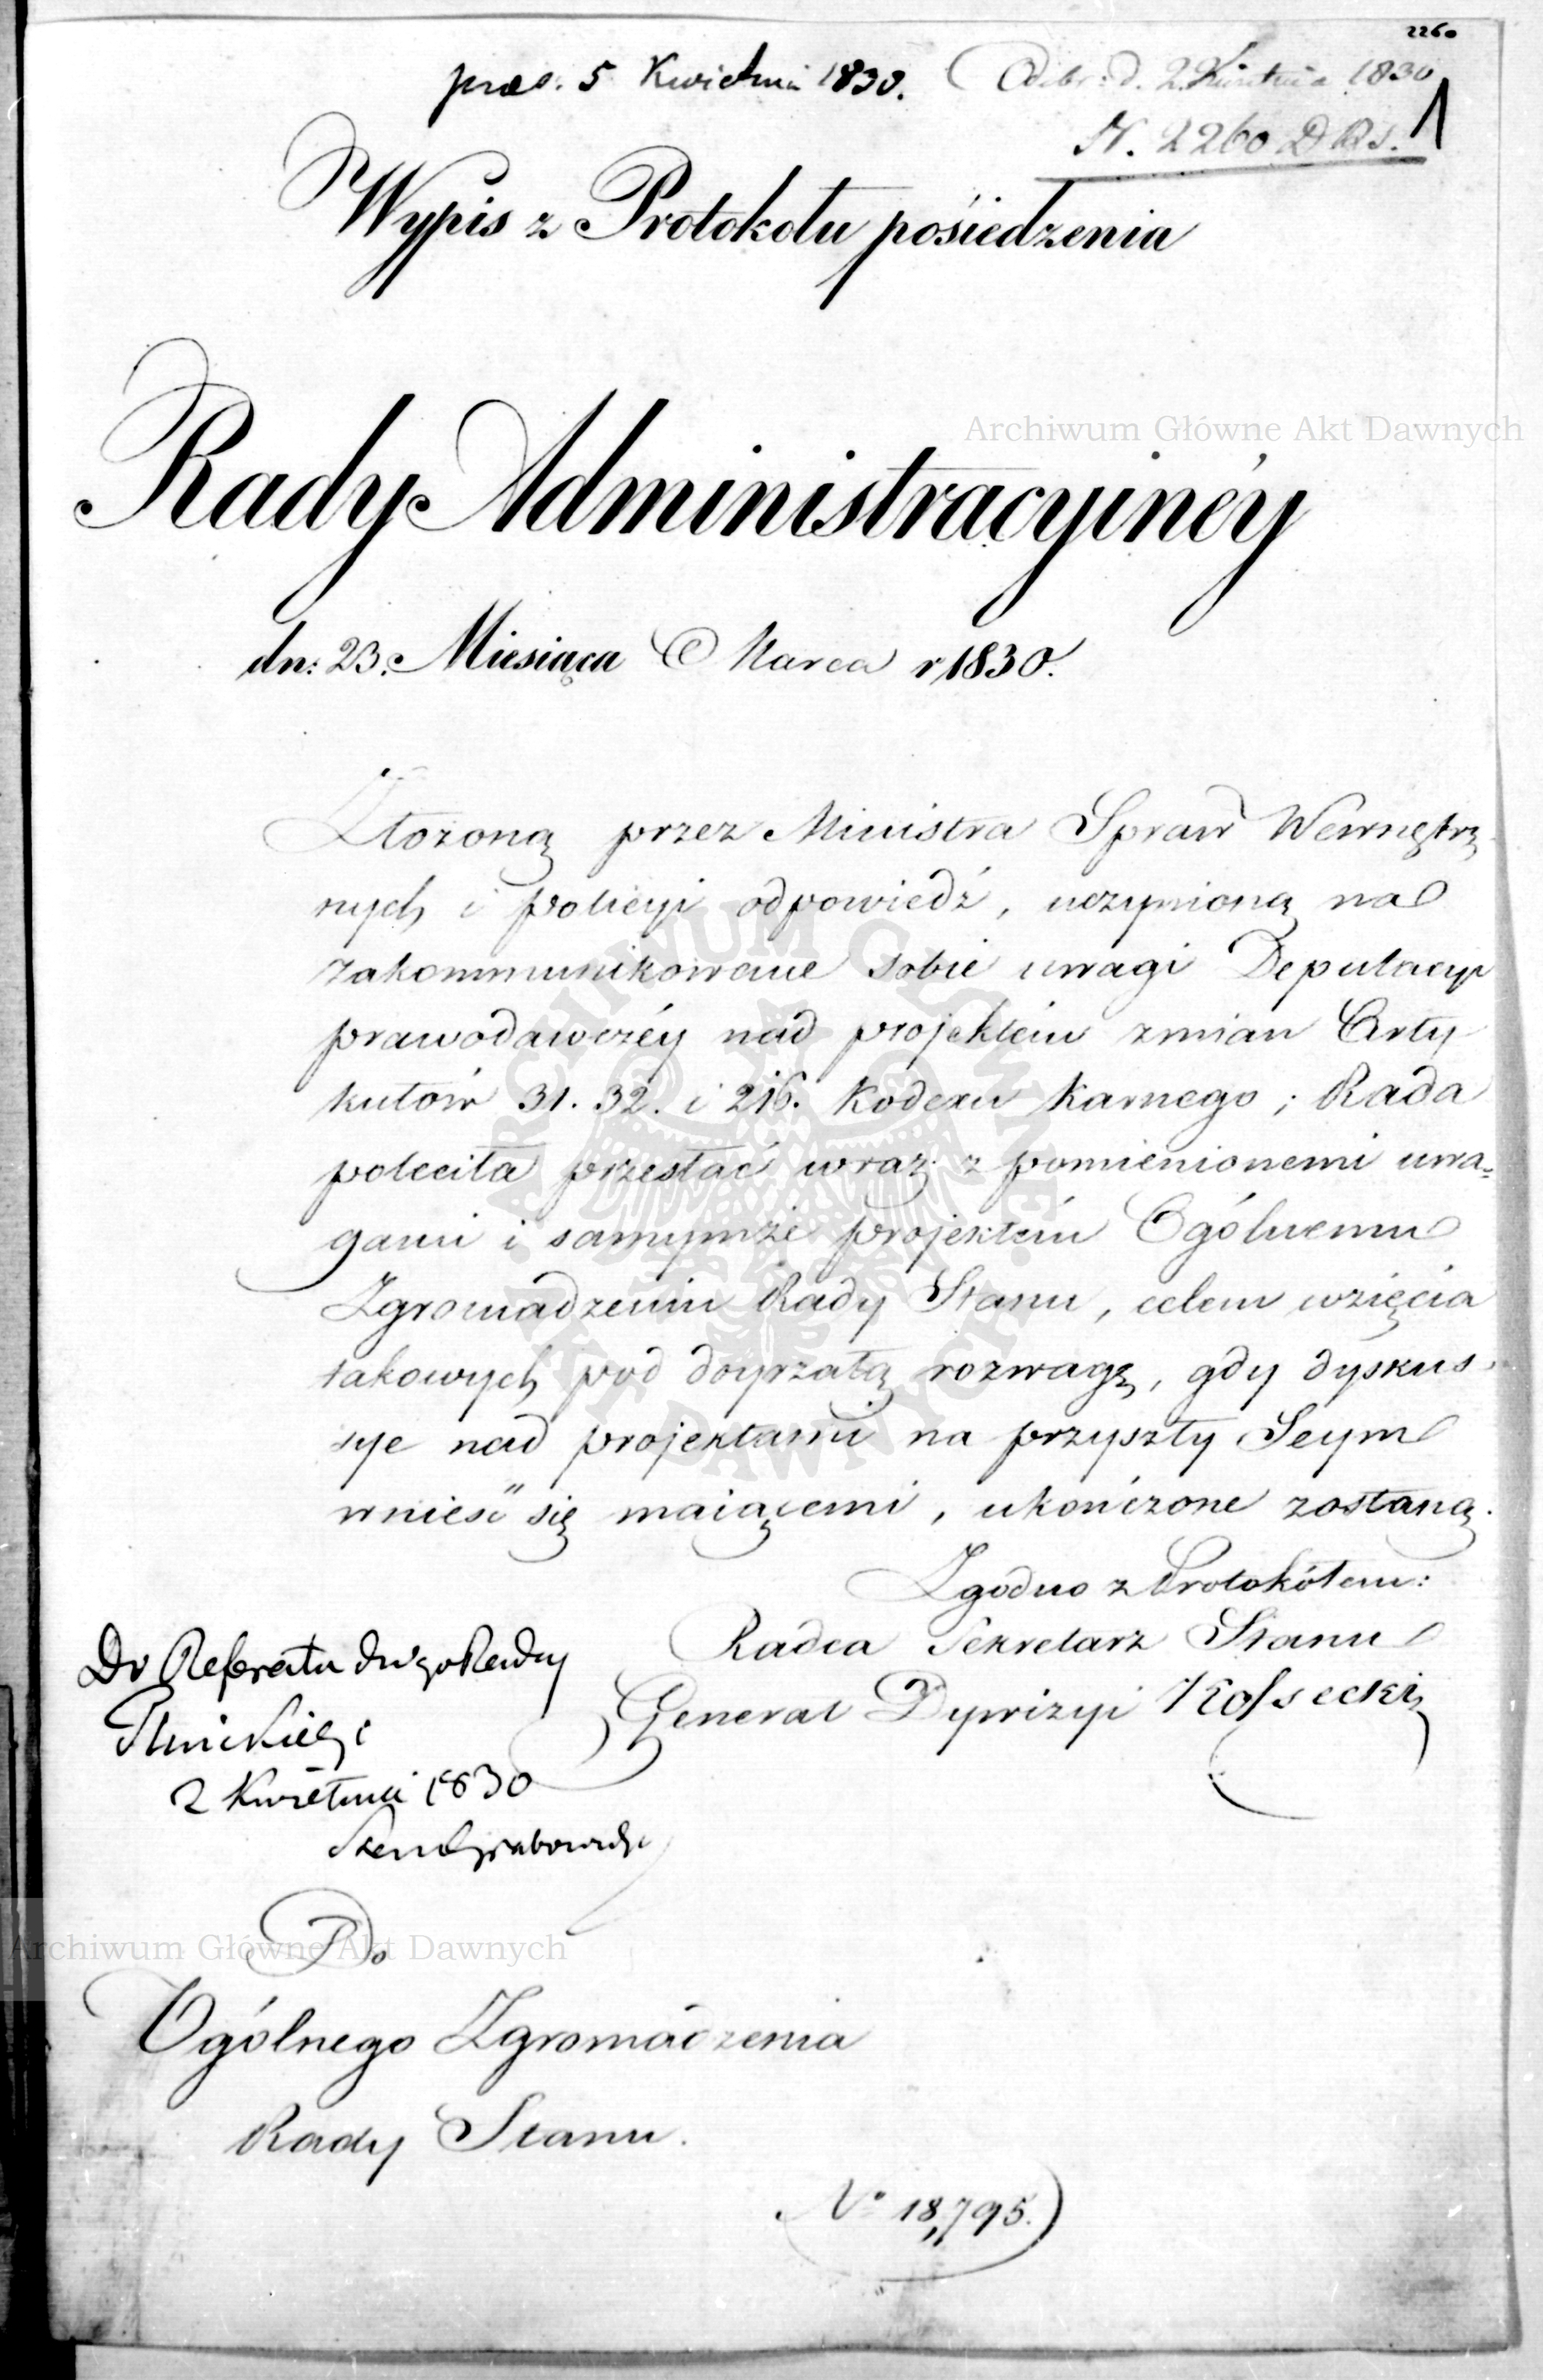 2260
praes. 5 Kwietnia 1830.
Odebr: d. 2 Kwietnia 1830
N. 2260 D R S.
1
Wypis z Protokołu posiedzenia
Rady Administracyiney
dn: 23. Miesiąca Marca r. 1830.
Archiwum Główne Akt Dawnych
Złożoną przez Ministra Spraw Wewnętrz
nych i Policyi odpowiedź, uczynioną na
zakommunikowane sobie uwagi Deputacyi
prawodawczéy nad projektém zmian Arty
kułów 31. 32. i 216. Kodexu Karnego; Rada
poleciła przesłać wraz z pomienionemi uwa=
gami i samymże projektém Ogólnemu
Zgromadzeniu Rady Stanu, celem wzięcia
takowych pod doyrzałą rozwagę, gdy dyskus
sye nad projektami na przyszły Seym
wnieść się maiącemi, ukończone zostaną.
Zgodno z Protokółem:
Radca Sekretarz Stanu
Generał Dywizyi Kossecki
Do Referatu Radcy
2 Kwietnia 1830
Grabowski
Do
Ogólnego Zgromadzenia
Rady Stanu.
Nº 18,795.
Archiwum Główne Akt Dawnych
ARCHIWUM GŁÓWNE AKT DAWNYCH